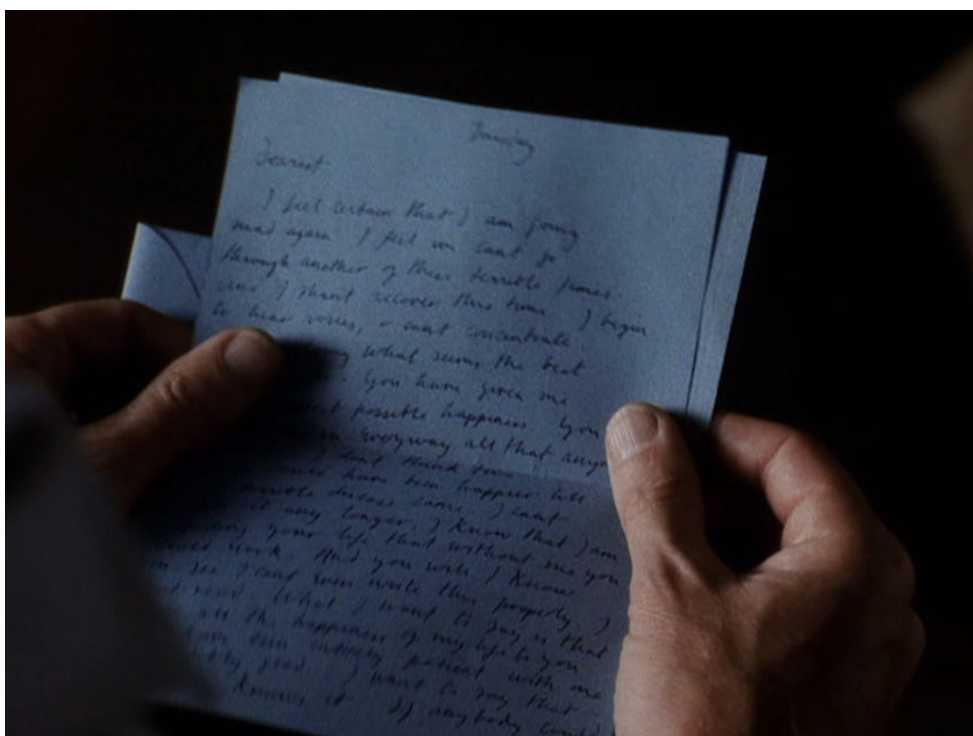 Tuesday
Dearest
I feel certain that I am going
mad again I feel we cant go
through another of these terrible times.
and I shant recover this time. I begin
to hear voices, & cant concentrate.
what seems the best
You have given me
possible happiness. You
everyway all that
I dont think two
have been happier till
disease came. I cant
it any longer, I know that I am
your life that without me you
work. And you will I know
see I cant even write this properly. I
read. What I want to say is that
all the happiness of my life to you
have been entirely patient with me
good I want to say that
knows it If anybody could